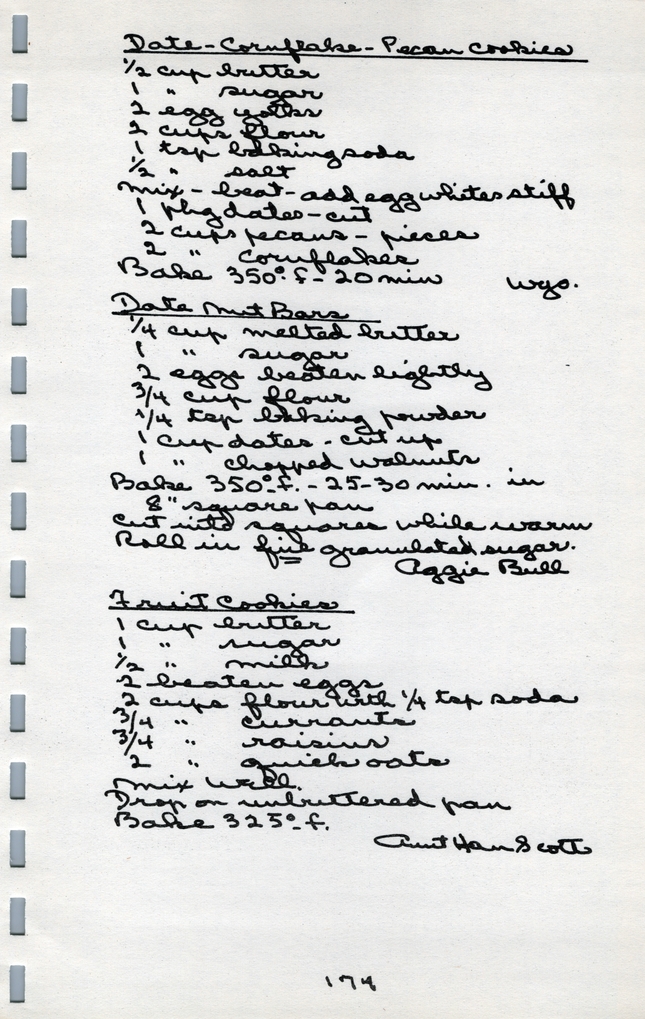 Date-Cornflake-Pecan Cookies
1/2 cup butter
1 " sugar
2 egg yolks
2 cups flour
1 tsp baking soda
1/2 " salt
Mix-beat-add egg whites stiff
1 pkg dates-cut
2 cups pecans-pieces
2 " cornflakes
Bake 350° f-20 min Wyo.
Date Nut Bars
1/4 cup melted butter
1 " sugar
2 eggs beaten lightly
3/4 cup flour
1/4 tsp baking powder
1 cup dates-cut up
1 " chopped walnuts
Bake 350° f.-25-30 min. in
8" square pan
Cut into squares while warm
Roll in fine granulated sugar.
Aggie Bull
Fruit Cookies
1 cup butter
1 " sugar
1/2 " milk
2 beaten eggs
2 cups flour with 1/4 tsp soda
3/4 " currants
3/4 " raisins
2 " quick oats
Mix well.
Drop on unbuttered pan
Bake 325° f.
Aunt Han Scott
174